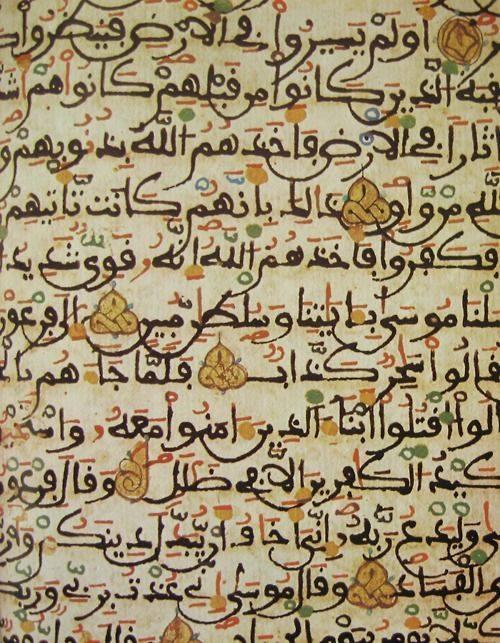 اولم يسيروا في الارض فينظروا
ـقبة الذين كانوا من قبلهم كانوا هم اشـ
اثارا في الارض فاخذهم الله بذنوبهم و
الله من واق ذلك بانهم كانت تاتيهم
فكفروا فاخذهم الله انه قوي شديد
ـسلنا موسى بـايتنا وسلطن مبين الى فرعو
ـقالوا سحر كذاب فلما جاءهم بالـ
ـالوا اقتلوا ابناء الذين امنوا معه واستـ
كيد الكفرين الا في ضلل وقال فرعو
ـى وليدع ربه اني اخاف ان يبدل دينكم وان
الفساد وقال موسى اني عذت بربي وربكـ